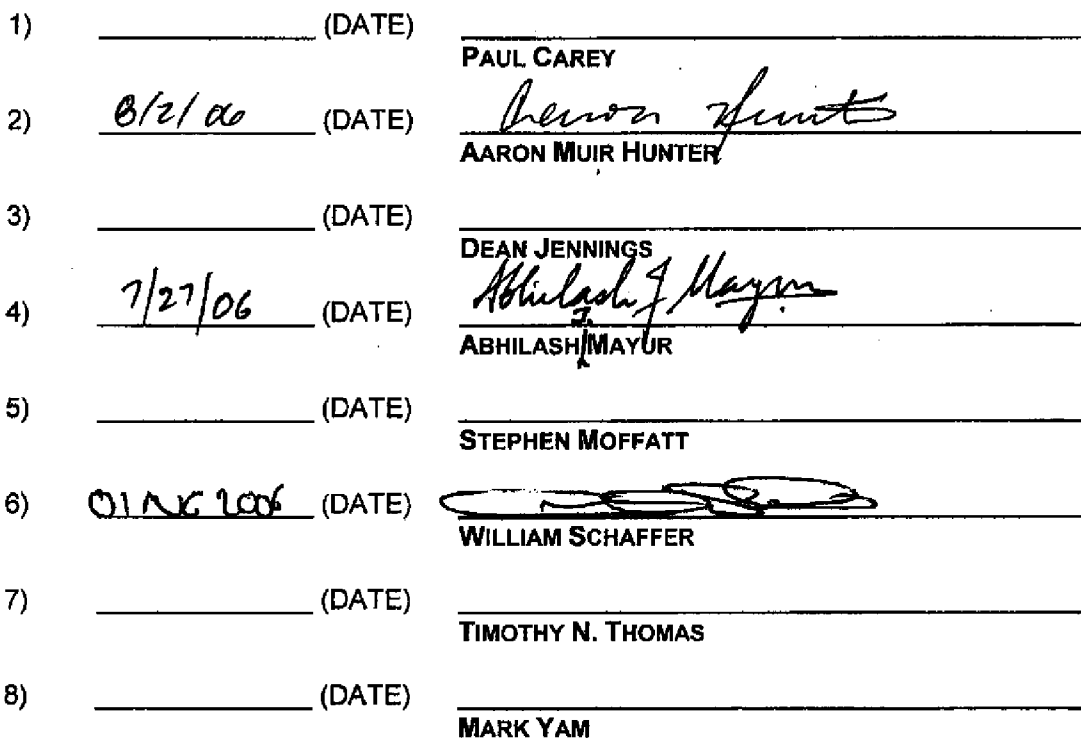 1) (DATE)
PAUL CAREY
2) 8/2/06 (DATE) Aaron Hunter
AARON MUIR HUNTER
3) (DATE)
DEAN JENNINGS
4) 7/27/06 (DATE) Abhilash J Mayur
J.
ABHILASH MAYUR
5) (DATE)
STEPHEN MOFFATT
6) 01 AUG 2006 (DATE)
WILLIAM SCHAFFER
7) (DATE)
TIMOTHY N. THOMAS
8) (DATE)
MARK YAM